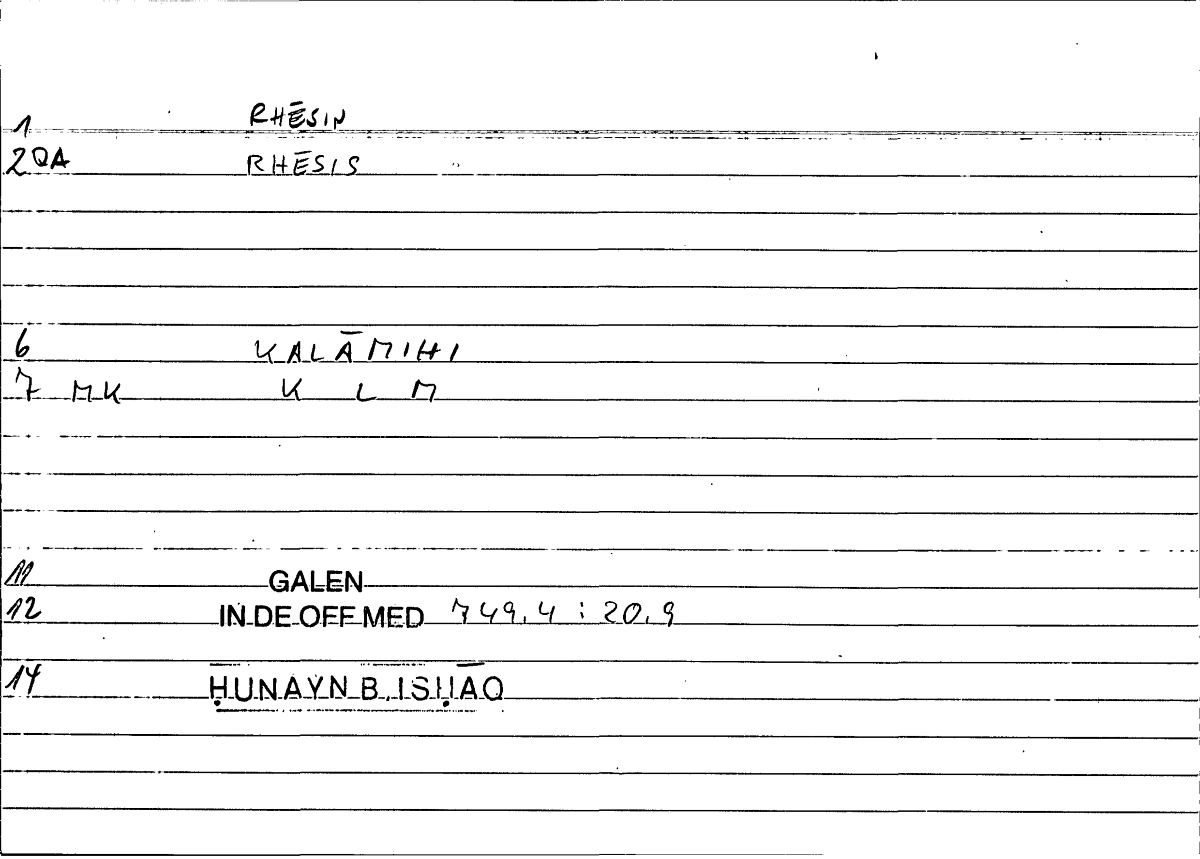 1 RHĒSIN
2 QA RHĒSIS
6 KALĀMIHI
7 MK K L M
11 GALEN
12 IN DE OFF MED 749.4 : 20.9
14 ḤUNAYN B. ISḤĀQ